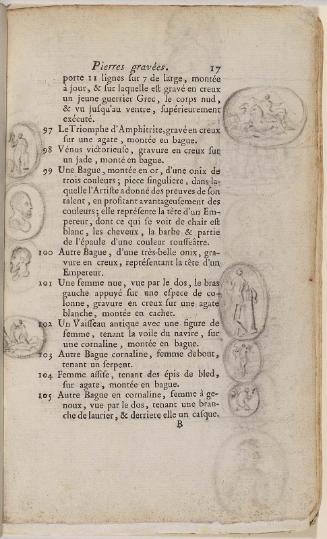 Pierres gravées. 17
porte 11 lignes sur 7 de large, montée
à jour, & sur laquelle est gravé en creux
un jeune guerrier Grec, le corps nud,
& vu jusqu'au ventre, supérieurement
exécuté.
97 Le Triomphe d'Amphitrite, gravé en creux
sur une agate, montée en bague.
98 Vénus victorieuse, gravure en creux sur
un jade, monté en bague.
99 Une Bague, montée en or, d'une onix de
trois couleurs; piece singuliere, dans la-
quelle l'Artiste a donné des preuves de son
talent, en profitant avantageusement des
couleurs; elle représente la tête d'un Em-
pereur, dont ce qui se voit de chair est
blanc, les cheveux, la barbe & partie
de l'épaule d'une couleur roussâtre.
100 Autre Bague, d'une très-belle onix, gra-
vure en creux, représentant la tête d'un
Empereur.
101 Une femme nue, vue par le dos, le bras
gauche appuyé sur une espece de co-
lonne, gravure en creux sur une agate
blanche, montée en cachet.
102 Un Vaisseau antique avec une figure de
femme, tenant la voile du navire, sur
une cornaline, montée en bague.
103 Autre Bague cornaline, femme debout,
tenant un serpent.
104 Femme assise, tenant des épis de bled,
sur agate, montée en bague.
105 Autre Bague en cornaline, femme à ge-
noux, vue par le dos, tenant une bran-
che de laurier, & derriere elle un casque.
B